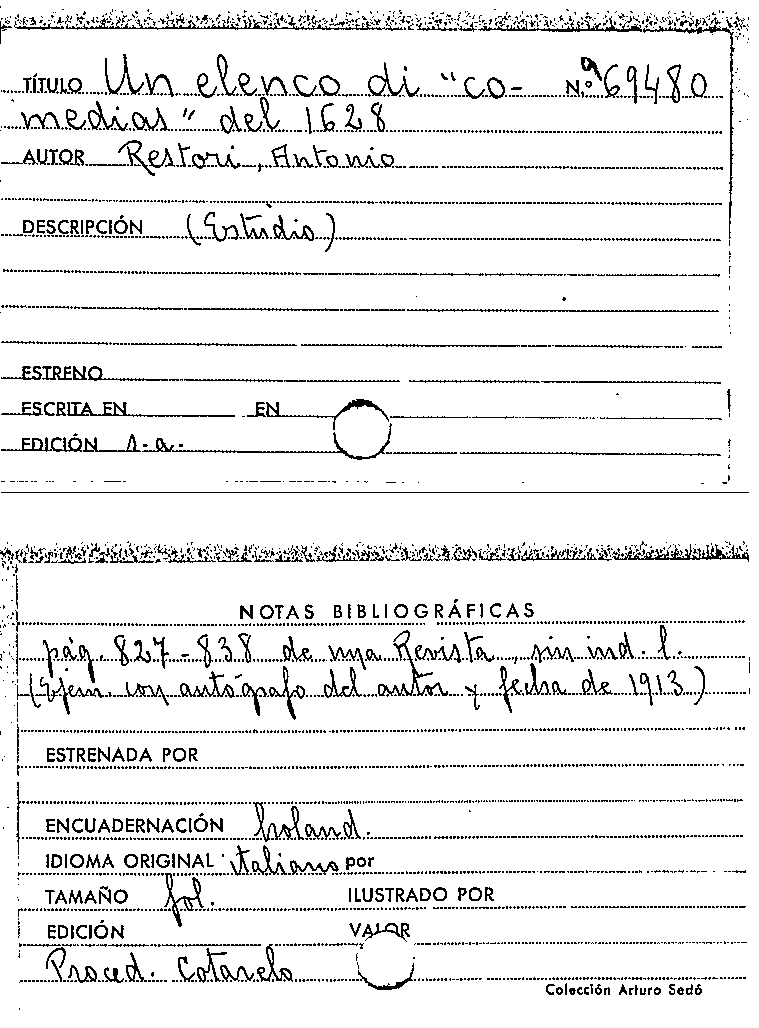 TÍTULO Un elenco di "co- N.º 69480
medias" del 1628
AUTOR Restori, Antonio
DESCRIPCIÓN (Estudio)
ESTRENO
ESCRITA EN EN
EDICIÓN s.a.
NOTAS BIBLIOGRÁFICAS
pág. 827-838 de una Revista, sin ind. l.
(Ejem. con autógrafo del autor y fecha de 1913)
ESTRENADA POR
ENCUADERNACIÓN holand.
IDIOMA ORIGINAL italiano por
TAMAÑO fol. ILUSTRADO POR
EDICIÓN VALOR
Proced. Cotarelo
Colección Arturo Sedó